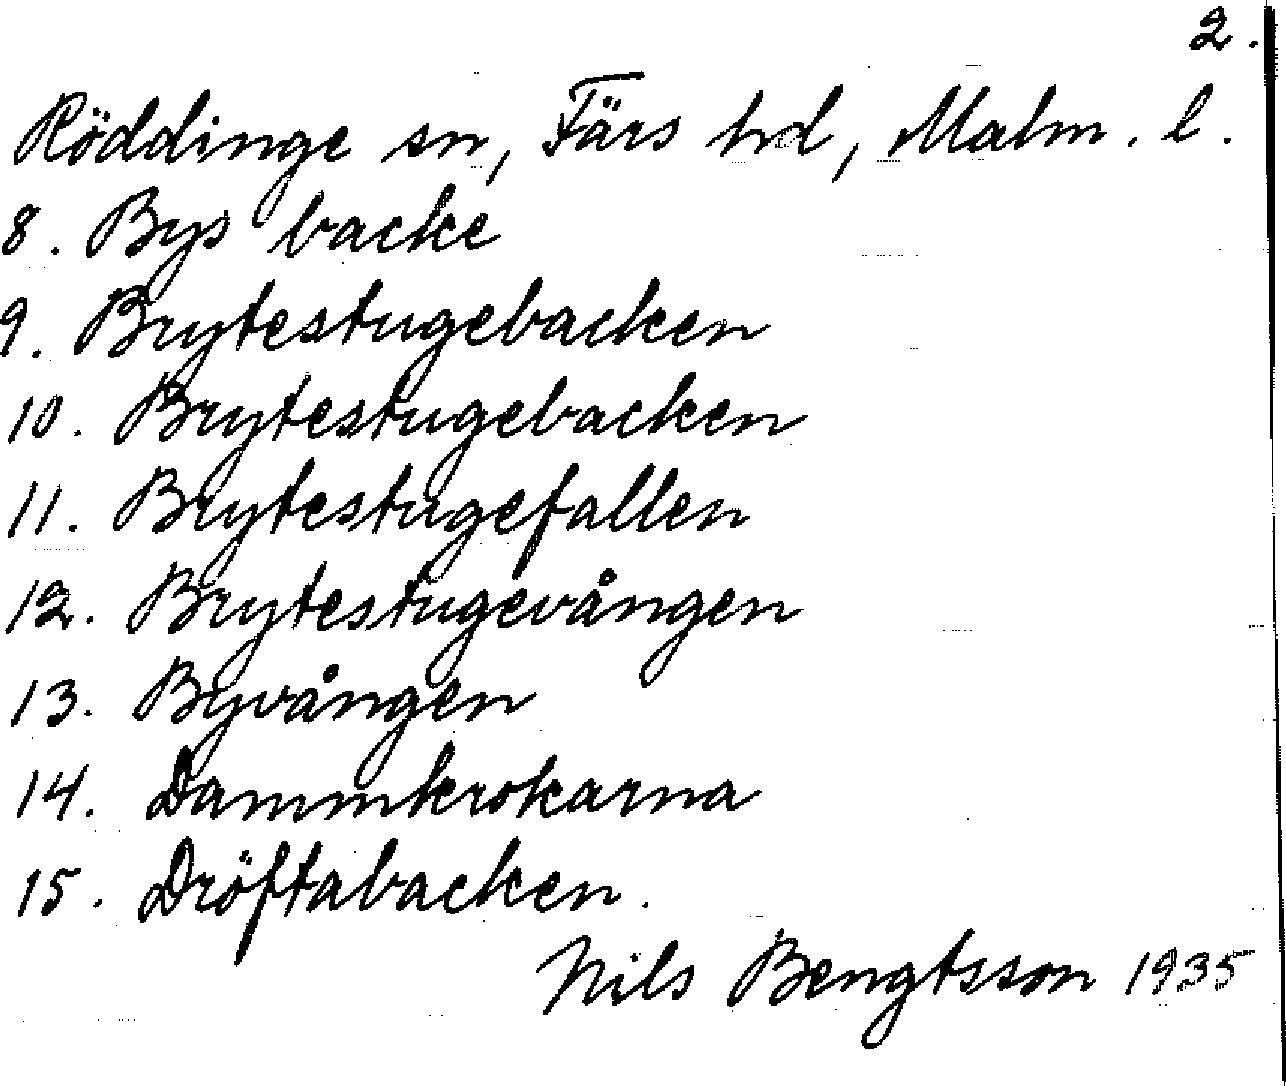 2.
Röddinge sn, Färs hd, Malm. l.
8. Bys backe
9. Brytestugebacken
10. Brytestugebacken
11. Brytestugefallen
12. Brytestugevången
13. Byvången
14. Dammkrokarna
15. Dröftabacken.
Nils Bengtsson 1935